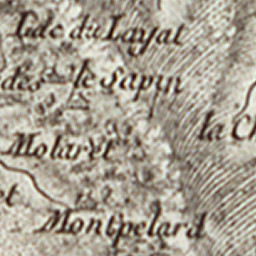 Lac du Layat
des
le Sapin
la Ch
Molaret
et
Montpelard